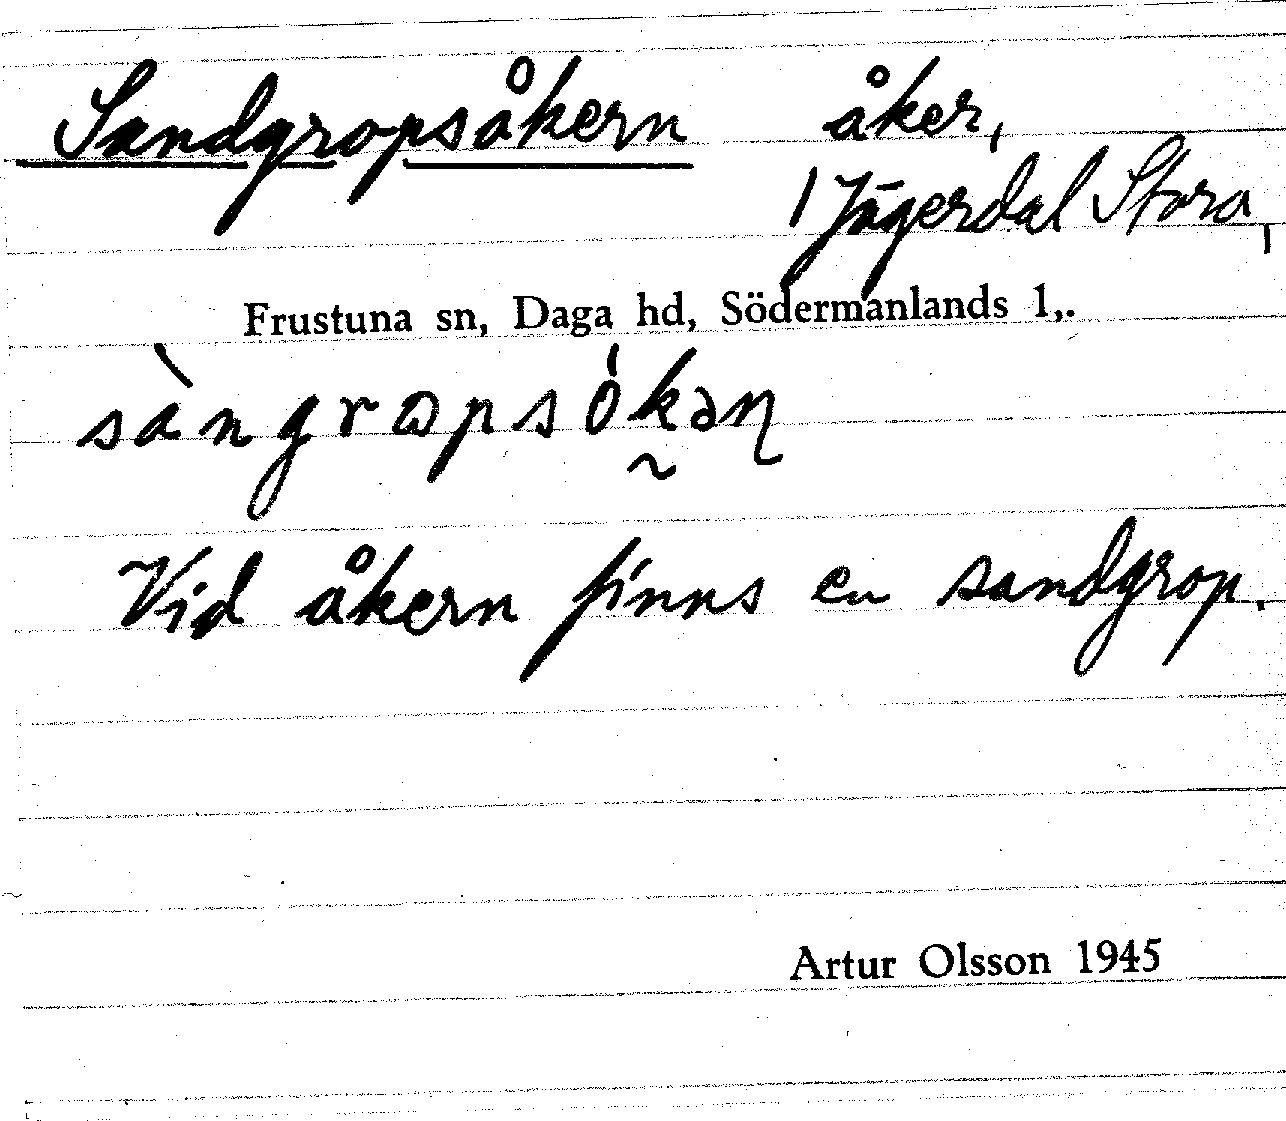 Sandgropsåkern åker,
1 Jägerdal Stora,
Frustuna sn, Daga hd, Södermanlands l,.
sàngrɷpsókəɳ
Vid åkern finns en sandgrop.
Artur Olsson 1945